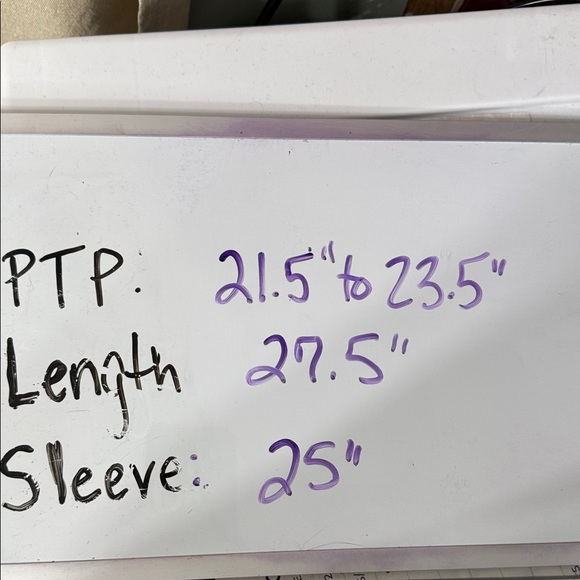 PTP. 21.5" to 23.5"
Length 27.5"
Sleeve: 25"